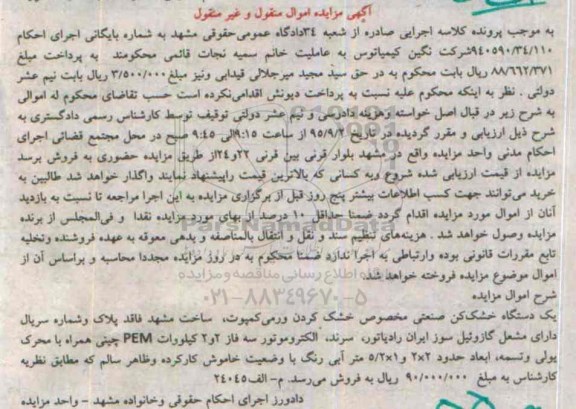 آگهی مزایده اموال منقول و غیر منقول
به موجب پرونده کلاسه اجرایی صادره از شعبه ۳۴دادگاه عمومی حقوقی مشهد به شماره بایگانی اجرای احکام
۹۴۰۵۹۰/۳۴/۱۱۰شرکت نگین کیمیاتوس به عاملیت خانم سمیه نجات قائمی محکومند به پرداخت مبلغ
۸۸/۶۶۲/۳۷۱ ریال بابت محکوم به در حق سید مجید میرجلالی قیدابی ونیز مبلغ ۳/۵۰۰/۰۰۰ ریال بابت نیم عشر
دولتی . نظر به اینکه محکوم علیه نسبت به پرداخت دیونش اقدامی‌نکرده است حسب تقاضای محکوم له اموالی
به شرح زیر در قبال اصل خواسته وهزینه دادرسی و نیم عشر دولتی توقیف توسط کارشناس رسمی دادگستری به
شرح ذیل ارزیابی و مقرر گردیده در تاریخ ۹۵/۹/۲ از ساعت ۹:۱۵الی ۹:۴۵ صبح در محل مجتمع قضائی اجرای
احکام مدنی واحد مزایده واقع در مشهد بلوار قرنی بین قرنی ۲۲و۲۴از طریق مزایده حضوری به فروش برسد
مزایده از قیمت ارزیابی شده شروع وبه کسانی که بالاترین قیمت راپیشنهاد نمایند واگذار خواهد شد طالبین به
خرید می‌توانند جهت کسب اطلاعات بیشتر پنج روز قبل از برگزاری مزایده به این اجرا مراجعه تا نسبت به بازدید
آنان از اموال مورد مزایده اقدام گردد ضمنا حداقل ۱۰ درصد از بهای مورد مزایده نقدا و فی‌المجلس از برنده
مزایده وصول خواهد شد . هزینه‌های تنظیم سند و نقل و انتقال بالمناصفه و بدهی معوقه به عهده فروشنده وتخلیه
تابع مقررات قانونی بوده وارتباطی به اجرا ندارد ضمنا محکوم به در روز مزایده مجددا محاسبه و براساس آن از
اموال موضوع مزایده فروخته خواهد شد.
شرح اموال مزایده
یک دستگاه خشک‌کن صنعتی مخصوص خشک کردن ورمی‌کمپوت، ساخت مشهد فاقد پلاک وشماره سریال
دارای مشعل گازوئیل سوز ایران رادیاتور، سرند، الکتروموتور سه فاز ۲و۲ کیلووات PEM چینی همراه با محرک
پولی وتسمه، ابعاد حدود ۲×۲ و۱×۵/۲ متر آبی رنگ با وضعیت خاموش کارکرده وظاهر سالم که مطابق نظریه
کارشناس به مبلغ ۹۰/۰۰۰/۰۰۰ ریال به فروش می‌رسد. م-الف۲۴۰۴۵
دادورز اجرای احکام حقوقی وخانواده مشهد – واحد مزایده
ParsNamadData
پایگاه اطلاع رسانی مناقصه و مزایده
۰۲۱-۸۸۳۴۹۶۷۰-۵